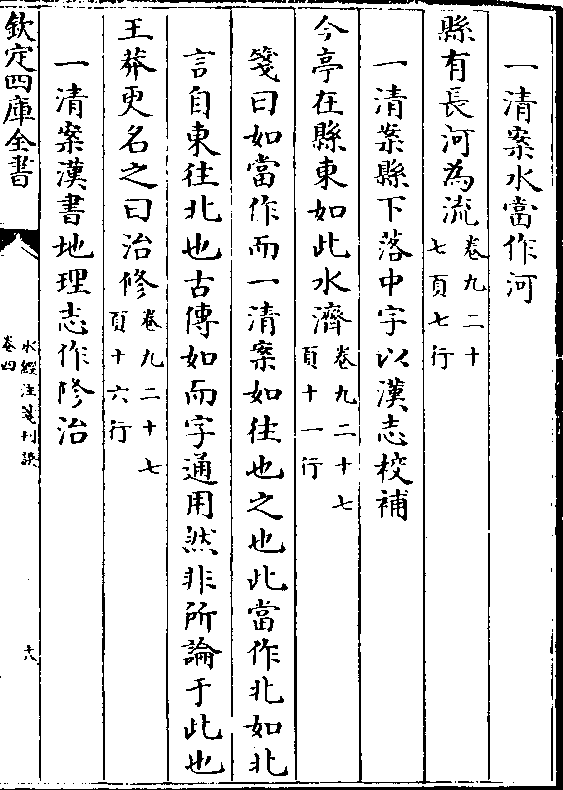 一清案水當作河
縣有長河為流卷九二十七頁七行
一清案縣下落中字以漢志校補
今亭在縣東如此水濟卷九二十七頁十一行
箋曰如當作而一清案如往也之也此當作北如北
言自東往北也古傳如而字通用然非所論于此也
王莽更名之曰治修卷九二十七頁十六行
一清案漢書地理志作修治
欽定四庫全書
水經注箋刊誤
卷四
十八